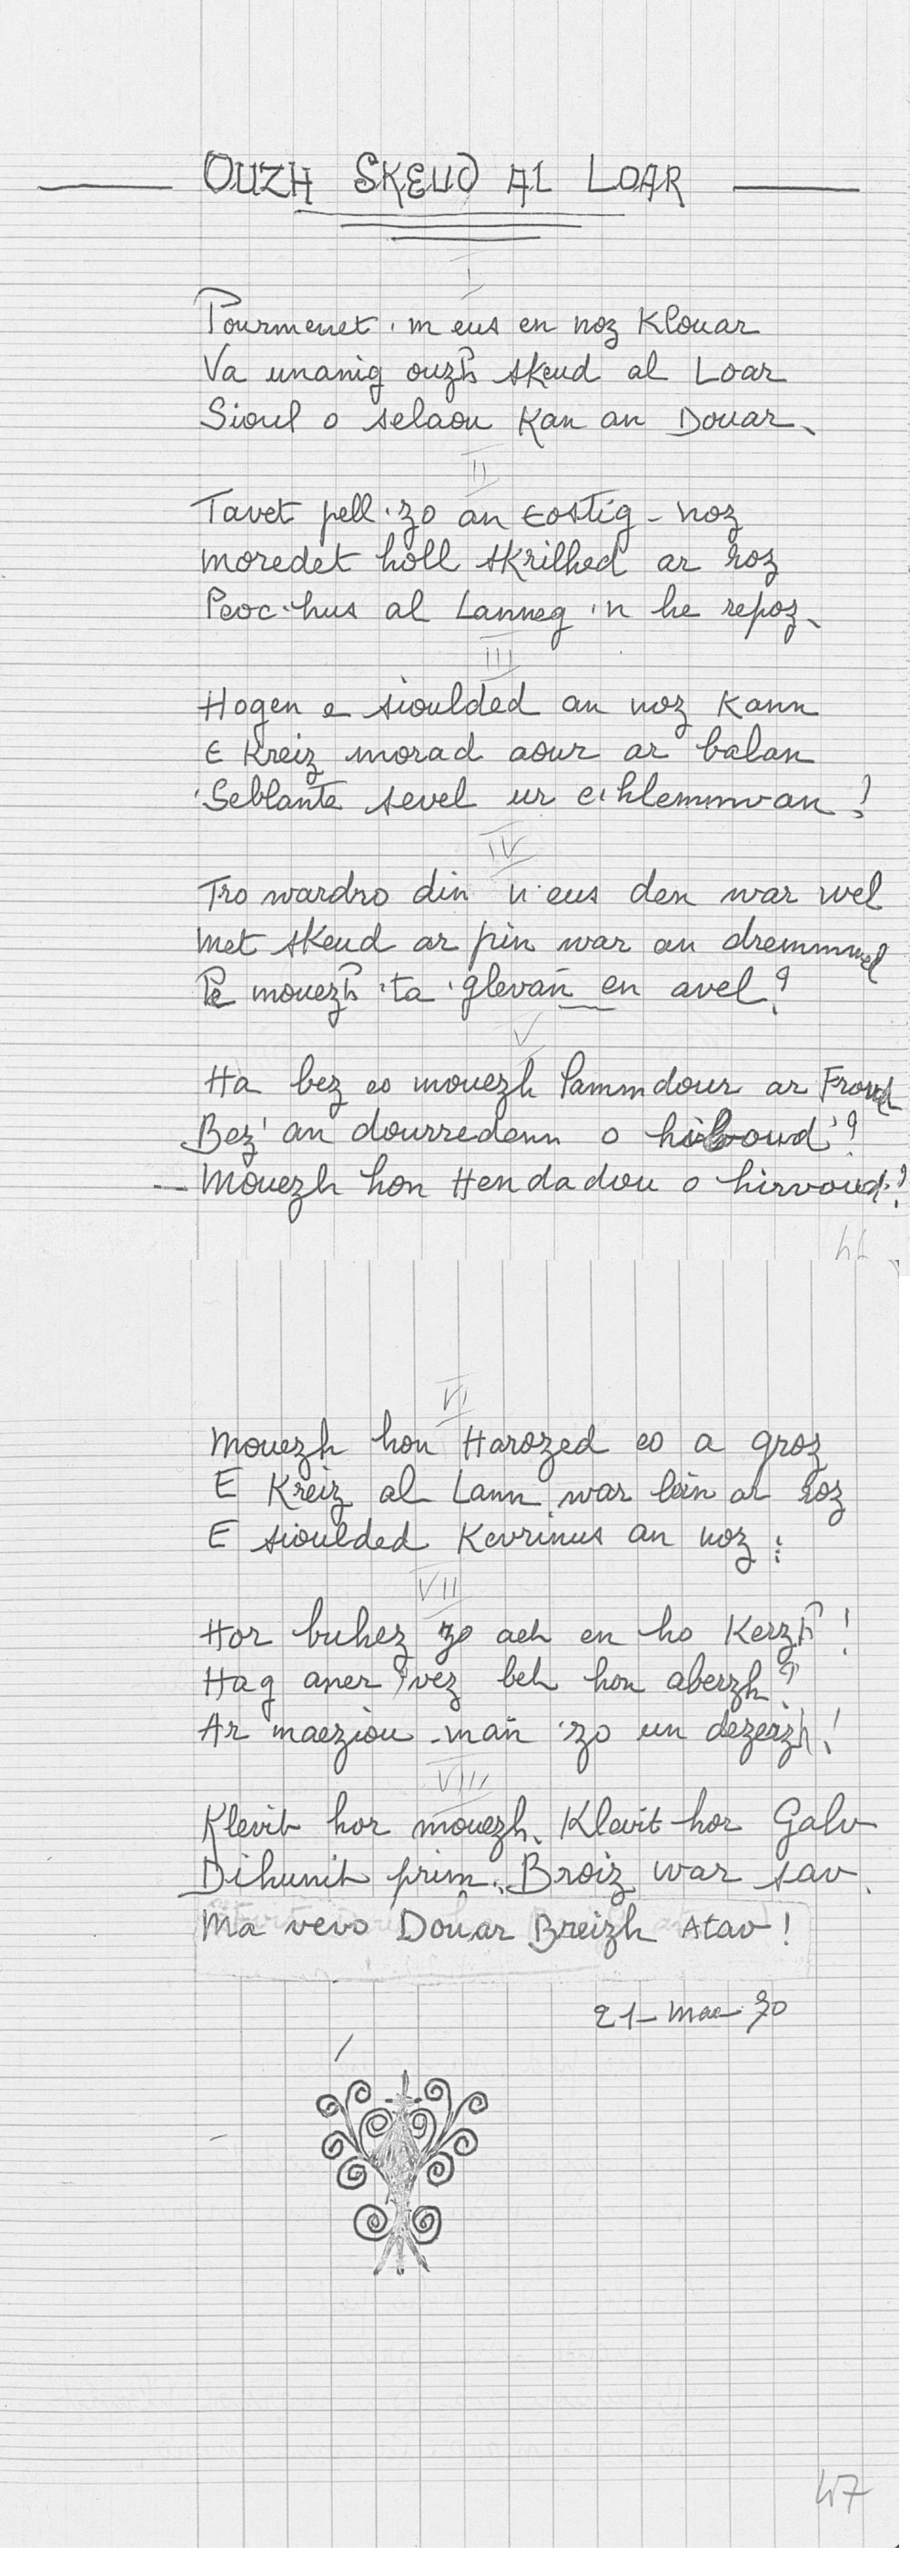 OUZH SKEUD AL LOAR
I
Pourmenet 'm eus en noz Klouar
Va unanig ouzh skeud al Loar
Sioul o selaou Kan an Douar.
II
Tavet pell 'zo an Eostig-noz
Moredet holl skrilhed ar roz
Peoc'hus al Lanneg 'n he repoz.
III
Hogen e sioulded an noz Kann
E Kreiz morad aour ar balan
'Seblante sevel ur c'hlemmvan !
IV
Tro wardro din n'eus den war wel
Met skeud ar pin war an dremmwel
Pe mouezh 'ta 'glevañ en avel ?
V
Ha bez eo mouezh Lammdour ar Froud
Bez' an dourredenn o hiboud' ?
— Mouezh hon Hendadou o hirvoud ?
46
VI
Mouezh hon Harozed eo a groz
E Kreiz al Lann war lein ar roz
E sioulded Kevrinus an noz :
VII
Hor buhez 'zo aet en ho Kerzh !
Hag aner 'vez bet hon aberzh ?
Ar maeziou-mañ 'zo un dezerzh !
VIII
Klevit hor mouezh, Klevit hor Galv
Dihunit prim, Broiz war sav.
Ma vevo Douar Breizh Atav !
21- Mae 70
47